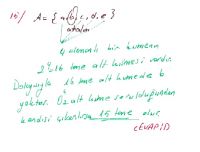 15) A = { a,b,c,d,e }
atalım
4 elemanlı bir kümenin
2⁴=16 tane alt kümesi vardır.
Dolayısıyla 16 tane alt kümede b
yoktur. Öz alt küme sorulduğundan
kendisi çıkarılırsa 15 tane olur.
(CEVAP D)